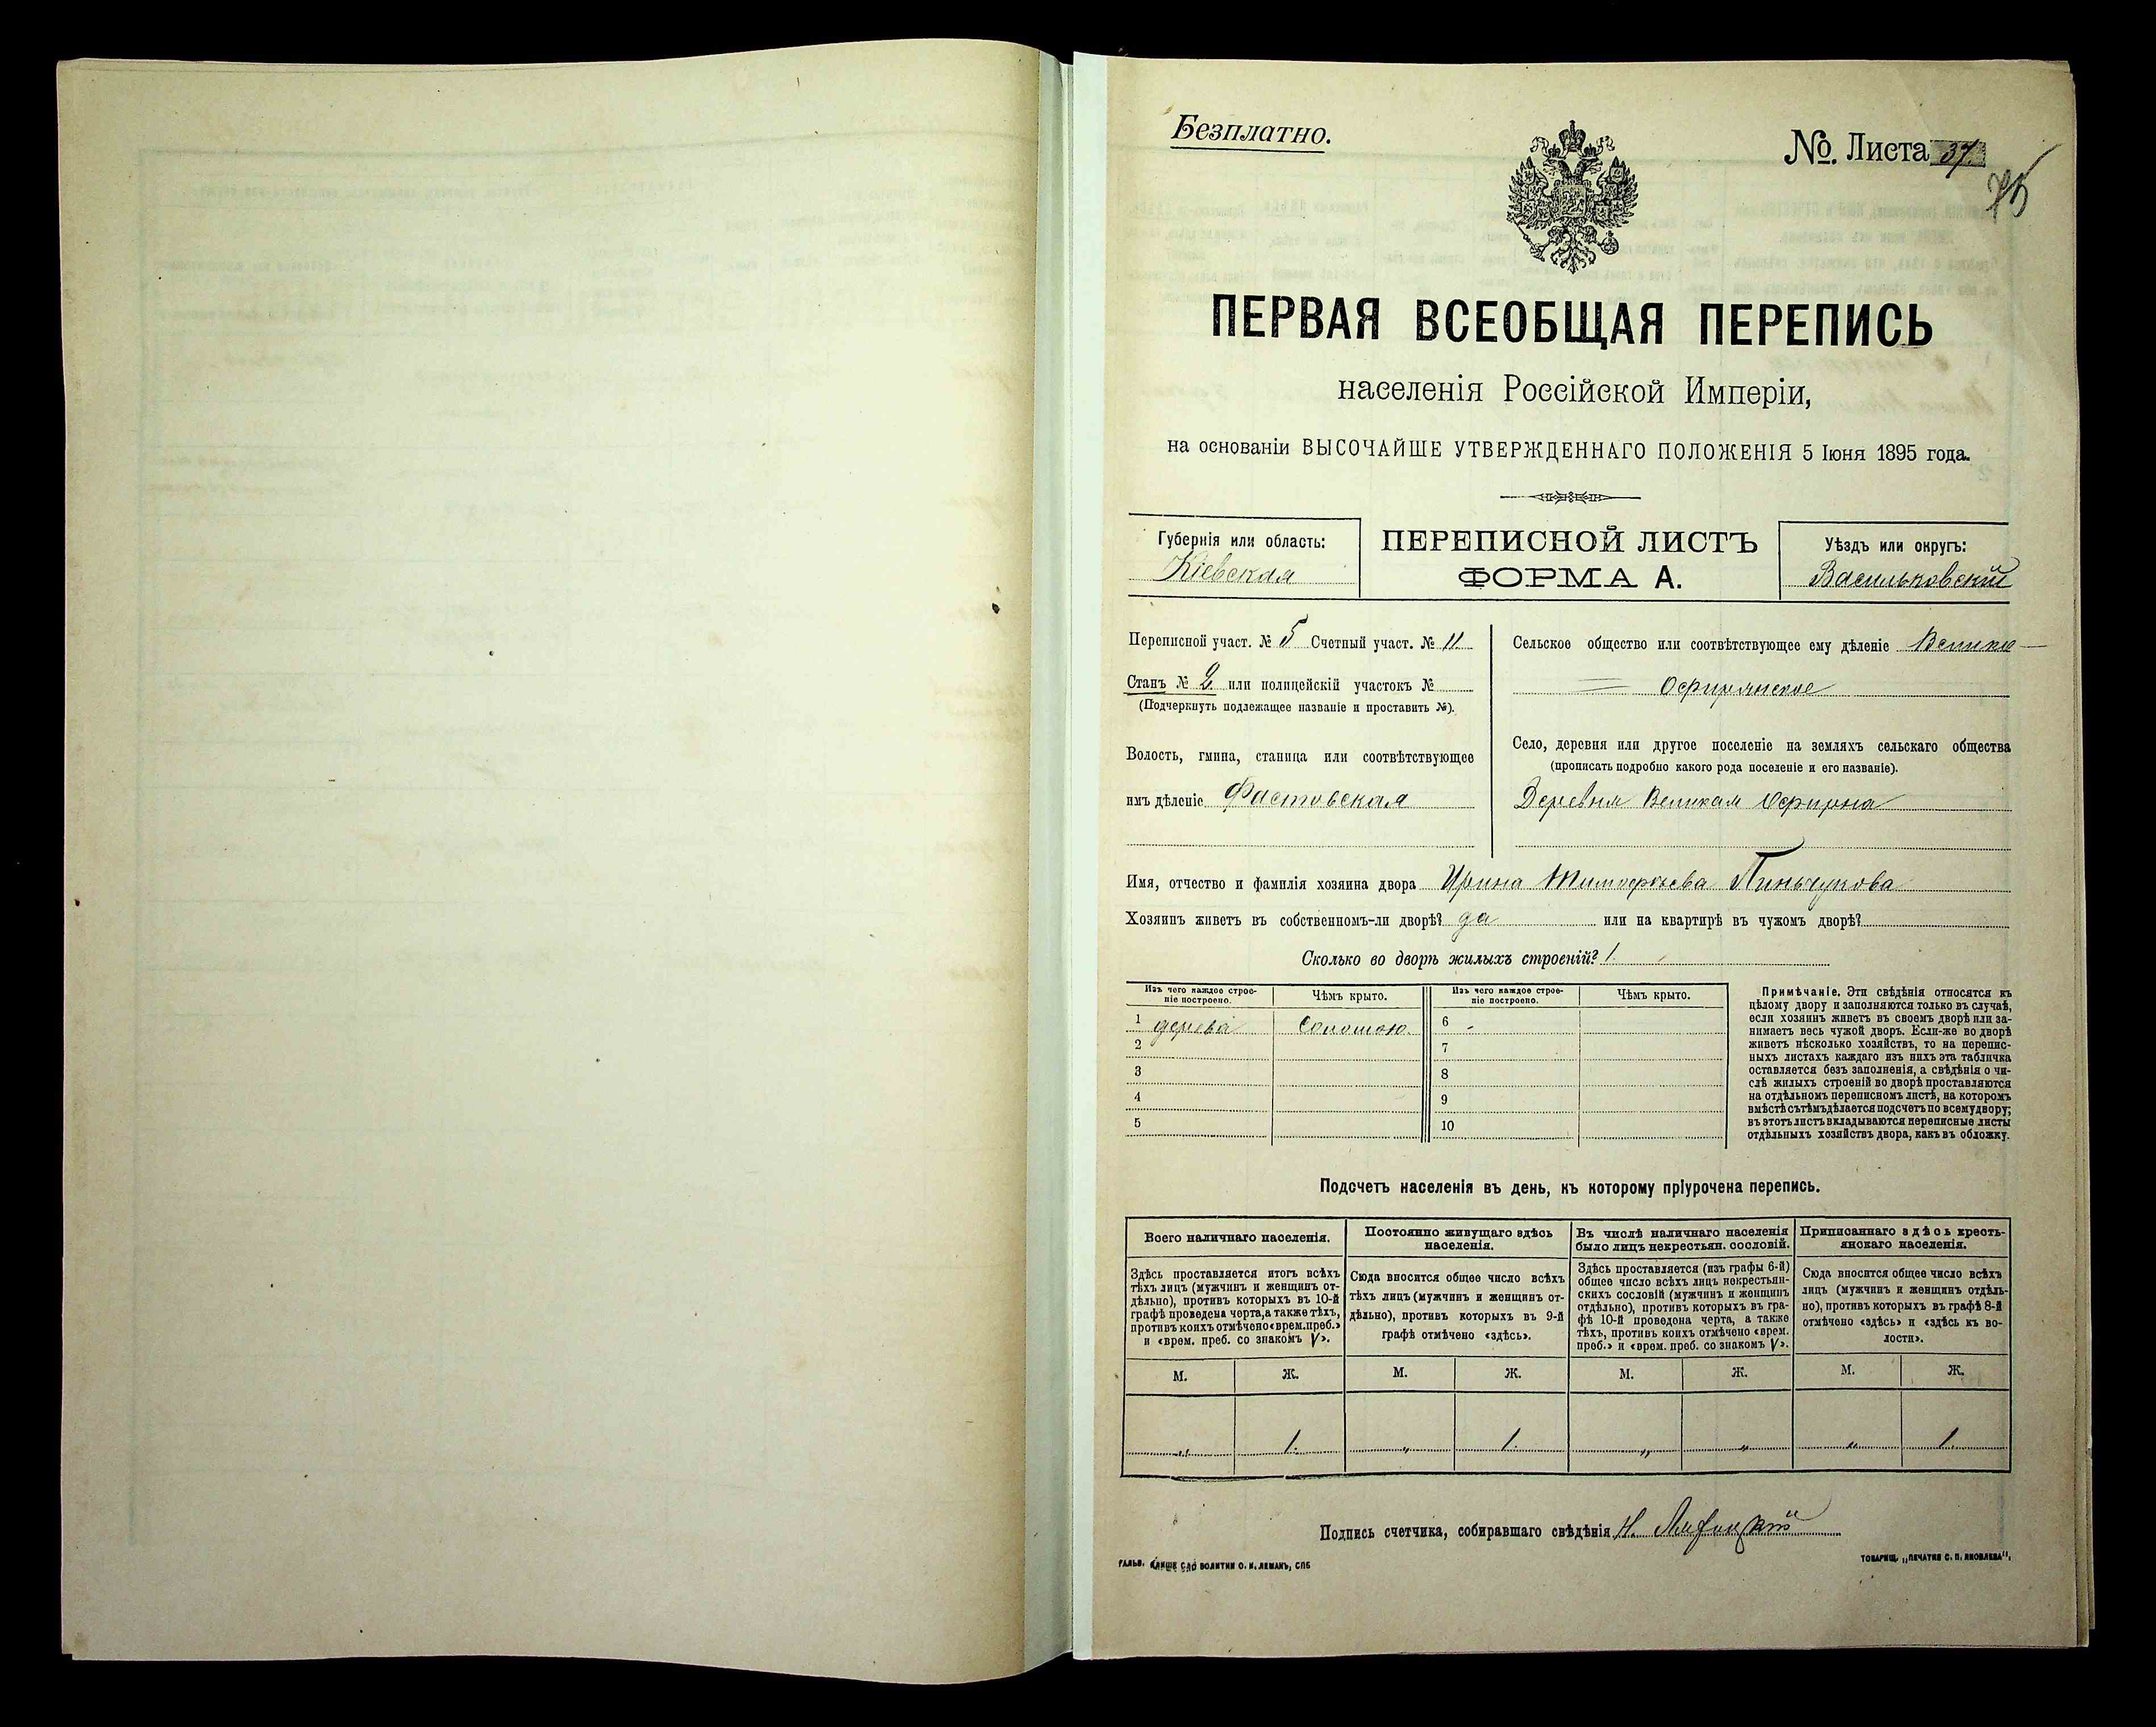 Безплатно.
№. Листа 37.
75
ПЕРВАЯ ВСЕОБЩАЯ ПЕРЕПИСЬ
населенія Россійской Имперіи,
на основаніи ВЫСОЧАЙШЕ УТВЕРЖДЕННАГО ПОЛОЖЕНІЯ 5 Іюня 1895 года.
Губернія или область:
Кіевская
ПЕРЕПИСНОЙ ЛИСТЪ
ФОРМА А.
Уѣздъ или округъ:
Васильковскій
Переписной участ. № 5 Счетный участ. № 11.
Станъ № 2 или полицейскій участокъ №
(Подчеркнуть подлежащее названіе и проставить №).
Волость, гмина, станица или соотвѣтствующее
имъ дѣленіе Фастовская
Сельское общество или соотвѣтствующее ему дѣленіе Велико-
Офирнянское
Село, деревня или другое поселеніе на земляхъ сельскаго общества
(прописать подробно какого рода поселеніе и его названіе).
Деревня Великая Офирна
Имя, отчество и фамилія хозяина двора Ирина Тимофѣева Пинчукова
Хозяинъ живетъ въ собственномъ-ли дворѣ? да или на квартирѣ въ чужомъ дворѣ?
Сколько во дворѣ жилыхъ строеній? 1.
Изъ чего каждое строе-
ніе построено.
Чѣмъ крыто.
Изъ чего каждое строе-
ніе построено.
Чѣмъ крыто.
1 дерева Соломою 6
2 7
3 8
4 9
5 10
Примѣчаніе. Эти свѣдѣнія относятся къ
цѣлому двору и заполняются только въ случаѣ,
если хозяинъ живетъ въ своемъ дворѣ или за-
нимаетъ весь чужой дворъ. Если-же во дворѣ
живетъ нѣсколько хозяйствъ, то на перепис-
ныхъ листахъ каждаго изъ нихъ эта табличка
оставляется безъ заполненія, а свѣдѣнія о чи-
слѣ жилыхъ строеній во дворѣ проставляются
на отдѣльномъ переписномъ листѣ, на которомъ
вмѣстѣ съ тѣмъ дѣлается подсчетъ по всему двору;
въ этотъ листъ вкладываются переписные листы
отдѣльныхъ хозяйствъ двора, какъ въ обложку.
Подсчетъ населенія въ день, къ которому пріурочена перепись.
Всего наличнаго населенія.
Здѣсь проставляется итогъ всѣхъ
тѣхъ лицъ (мужчинъ и женщинъ от-
дѣльно), противъ которыхъ въ 10-й
графѣ проведена черта, а также тѣхъ,
противъ коихъ отмѣчено «врем. преб.»
и «врем. преб. со знакомъ V».
Постоянно живущаго здѣсь
населенія.
Сюда вносится общее число всѣхъ
тѣхъ лицъ (мужчинъ и женщинъ от-
дѣльно), противъ которыхъ въ 9-й
графѣ отмѣчено «здѣсь».
Въ числѣ наличнаго населенія
было лицъ некрестьян. сословій.
Здѣсь проставляется (изъ графы 6-й)
общее число всѣхъ лицъ некрестьян-
скихъ сословій (мужчинъ и женщинъ
отдѣльно), противъ которыхъ въ гра-
фѣ 10-й проведена черта, а также
тѣхъ, противъ коихъ отмѣчено «врем.
преб.» и «врем. преб. со знакомъ V».
Приписаннаго здѣсь кресть-
янскаго населенія.
Сюда вносится общее число всѣхъ
лицъ (мужчинъ и женщинъ отдѣль-
но), противъ которыхъ въ графѣ 8-й
отмѣчено «здѣсь» и «здѣсь къ во-
лости».
М. Ж. М. Ж. М. Ж. М. Ж.
„ 1. „ 1. „ „ „ 1.
Подпись счетчика, собиравшаго свѣдѣнія Н.
ТОВАРИЩ. „ПЕЧАТНЯ С. П. ЯКОВЛЕВА",